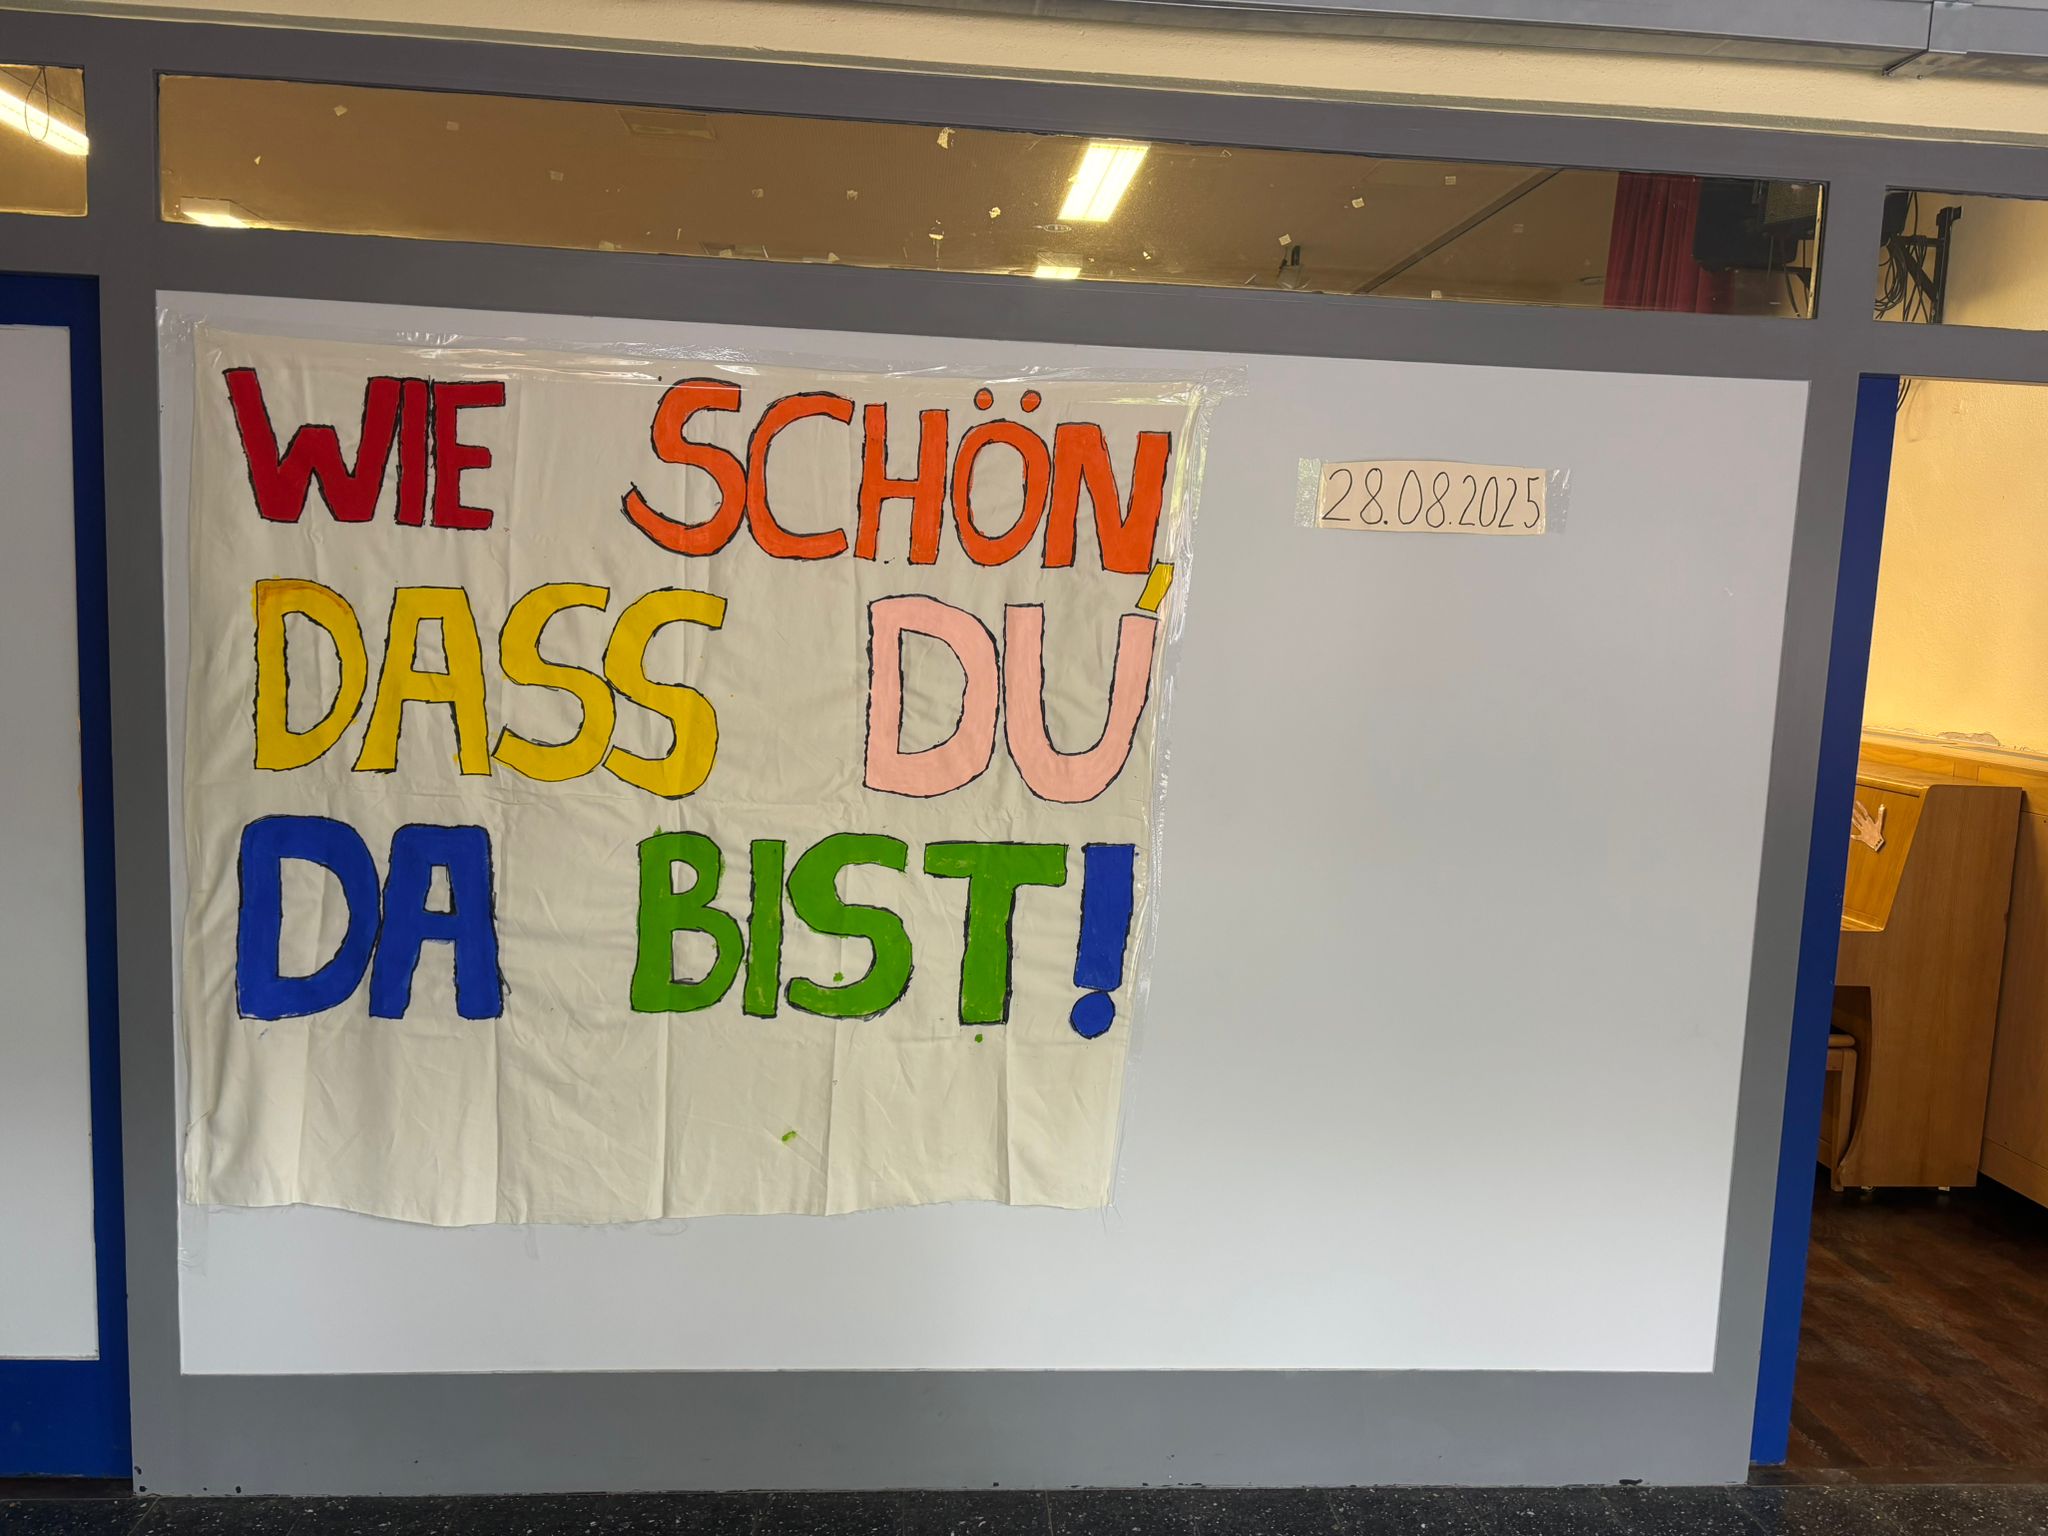 WIE SCHÖN,
DASS DU
DA BIST!
28.08.2025